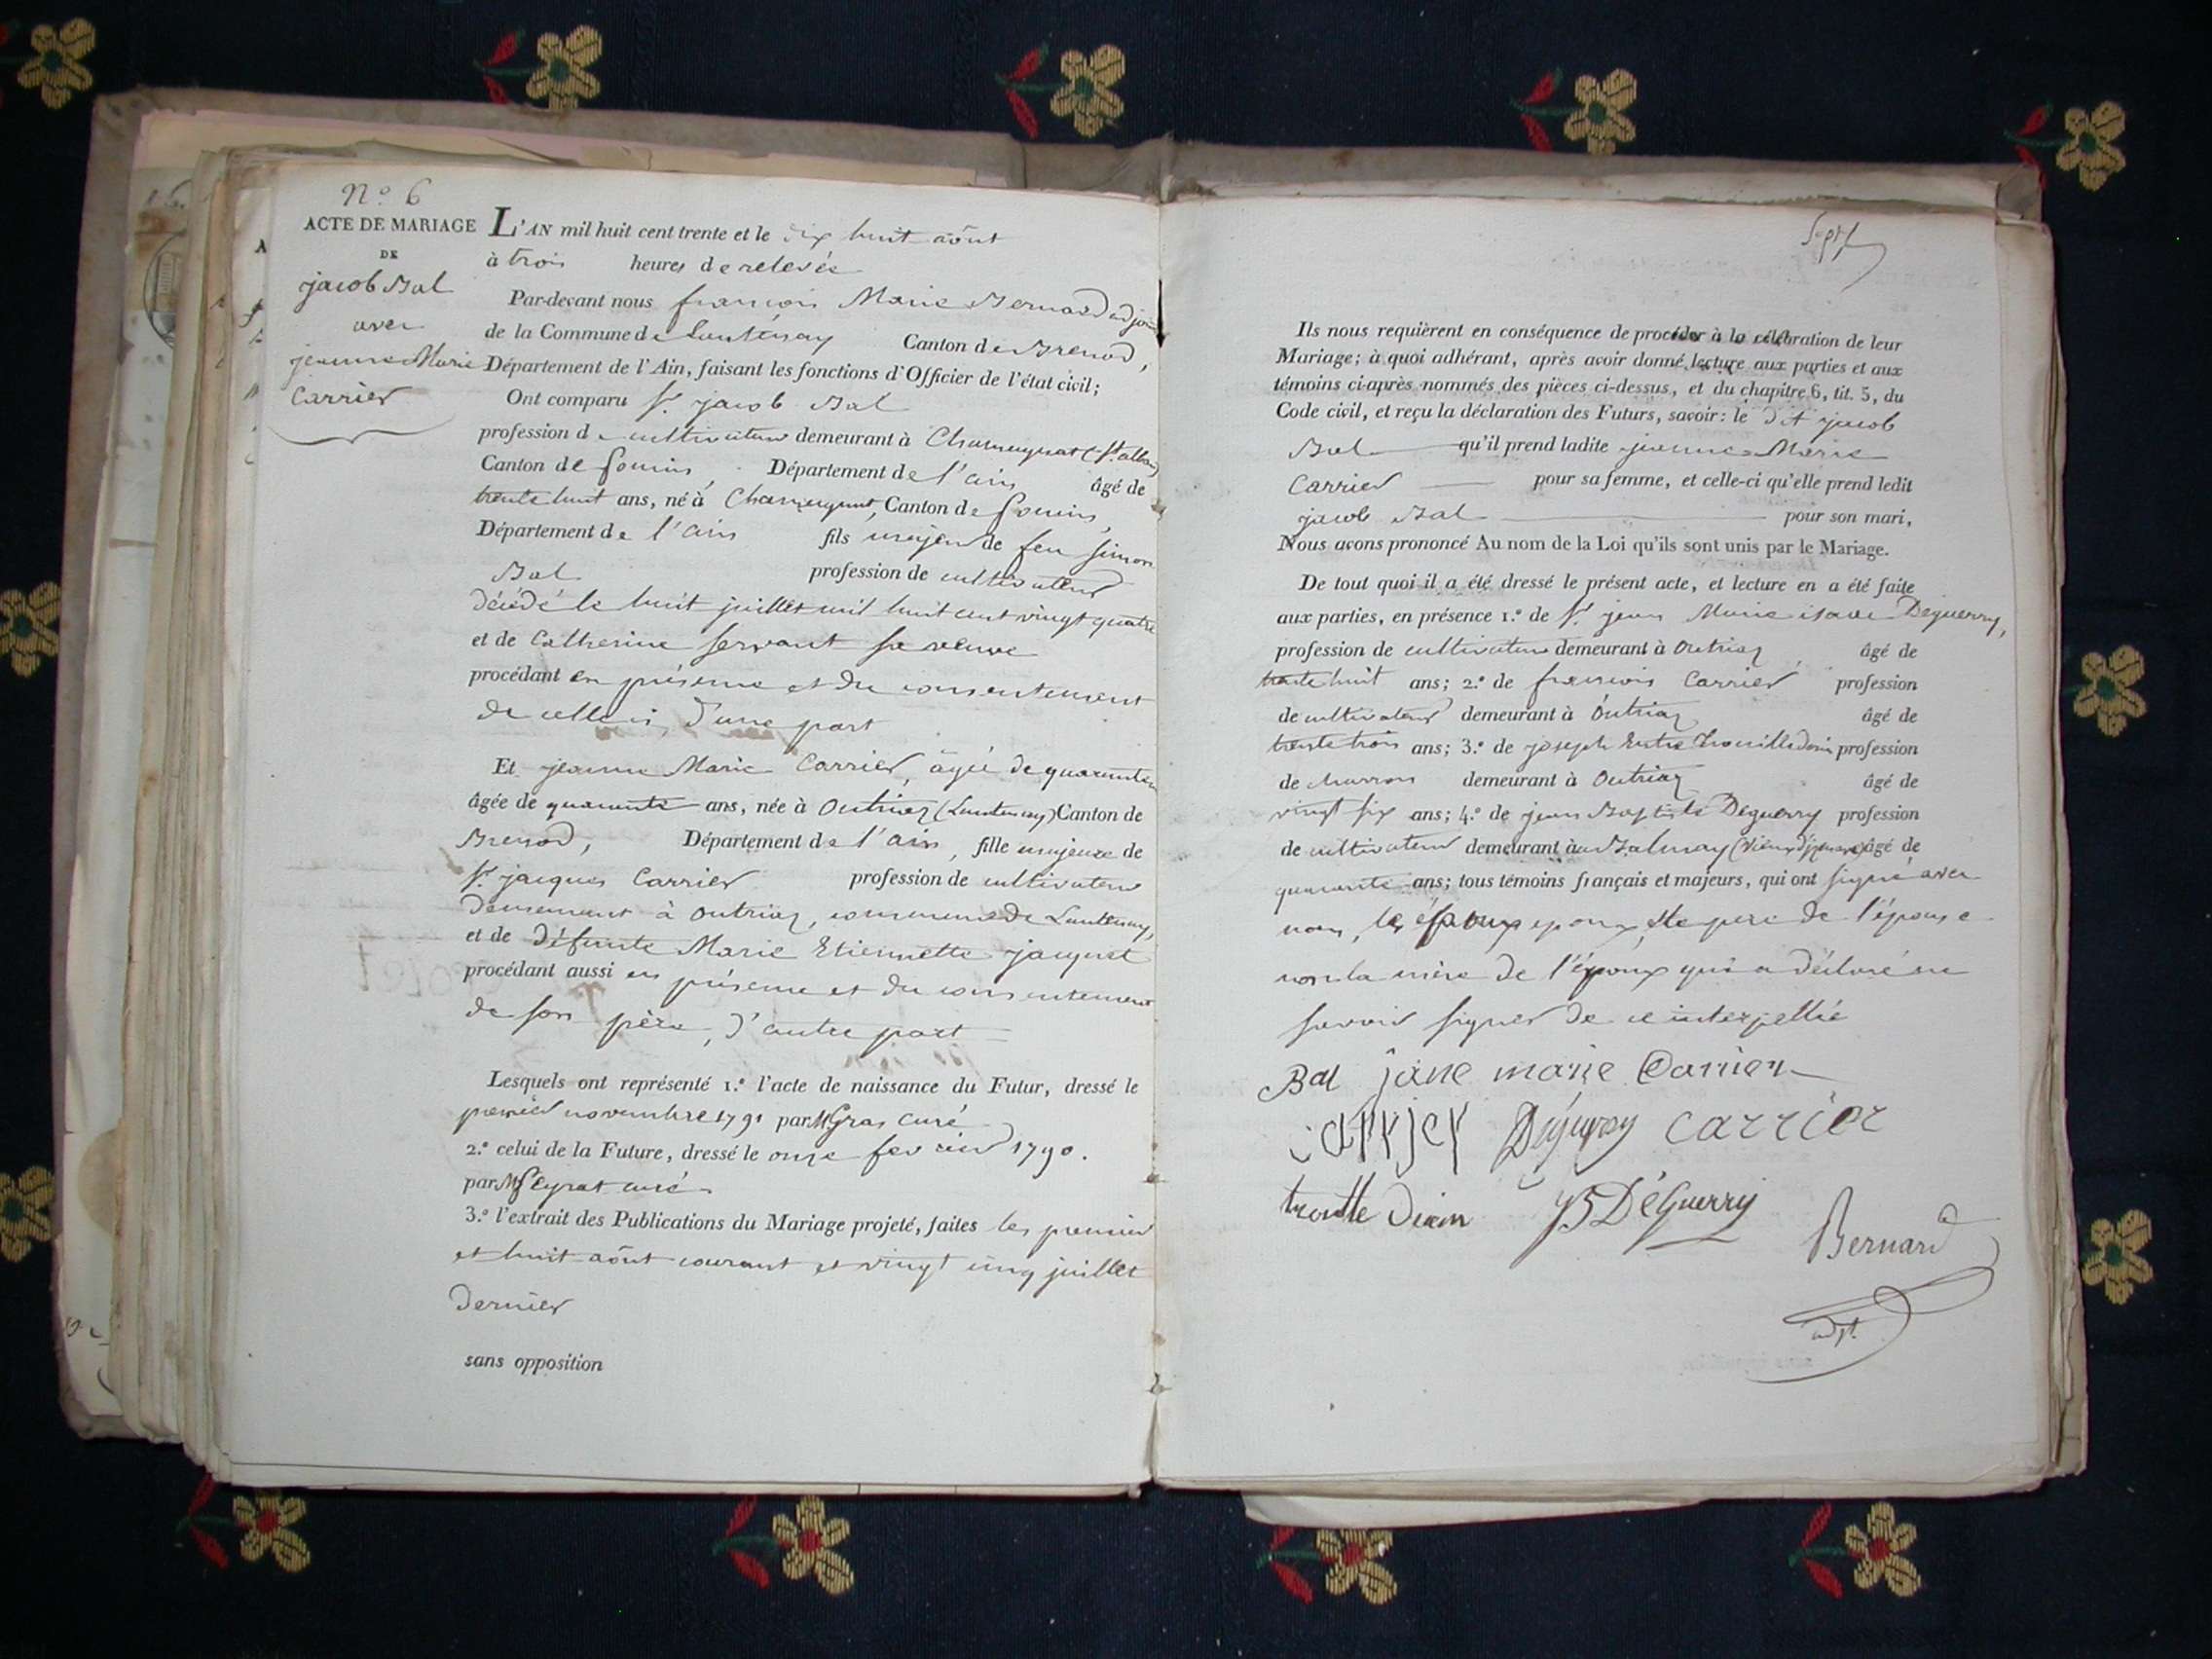 N.º 6
ACTE DE MARIAGE
DE
jacob Bal
avec
jeanne Marie
Carrier
L'AN mil huit cent trente et le dix huit août
à trois heures de relevée
Par-devant nous francois Marie Bernard adjoint
de la Commune de Lantenay Canton de Brenod,
Département de l'Ain, faisant les fonctions d'Officier de l'état civil;
Ont comparu Sr. jacob Bal
profession de cultivateur demeurant à Charmeygnat (St. alban)
Canton de Poncin, Département de l'ain âgé de
trente huit ans, né à Canton de Poncin,
Département de l'ain fils majeur de feu simon
Bal profession de cultivateur
décédé le huit juillet mil huit cent vingt quatre
et de Catherine servant sa veuve
procédant en présence et du consentement
de celle ci, d'une part
Et jeanne Marie Carrier, âgée de quarante
âgée de quarante ans, née à Outriaz (Lantenay) Canton de
Brenod, Département de l'ain, fille majeure de
Sr. jacques Carrier profession de cultivateur
demeurant à Outriaz, commune de Lantenay,
et de défunte Marie Etiennette jacquet
procédant aussi en présence et du consentement
de son père, d'autre part
Lesquels ont représenté 1.º l'acte de naissance du Futur, dressé le
premier novembre 1791 par M. Gras curé
2.º celui de la Future, dressé le onze fevrier 1790.
par M. Peyrat curé
3.º l'extrait des Publications du Mariage projeté, faites les premier
et huit août courant et vingt cinq juillet
dernier
sans opposition
Sept
Ils nous requièrent en conséquence de procéder à la célébration de leur
Mariage; à quoi adhérant, après avoir donné lecture aux parties et aux
témoins ci-après nommés des pièces ci-dessus, et du chapitre 6, tit. 5, du
Code civil, et reçu la déclaration des Futurs, savoir: le dit jacob
Bal qu'il prend ladite jeanne Marie
Carrier pour sa femme, et celle-ci qu'elle prend ledit
jacob Bal pour son mari,
Nous avons prononcé Au nom de la Loi qu'ils sont unis par le Mariage.
De tout quoi il a été dressé le présent acte, et lecture en a été faite
aux parties, en présence 1.º de Sr. jean Marie isaac Deguerry,
profession de cultivateur demeurant à Outriaz, âgé de
trente huit ans; 2.º de francois Carrier profession
de cultivateur demeurant à Outriaz âgé de
trente trois ans; 3.º de joseph profession
de charron demeurant à Outriaz âgé de
vingt six ans; 4.º de jean Baptiste Deguerry profession
de cultivateur demeurant à Balmay (Vieux d'izenave) âgé de
quarante ans; tous témoins français et majeurs, qui ont signé avec
nous, les époux, le pere de l'épouse
non la mère de l'époux qui a déclaré ne
savoir signer de ce interpellée
Bal jane marie Carrier
carrier Déguerry carrier
trouille Divin JB DéGuerry Bernard
adjt.